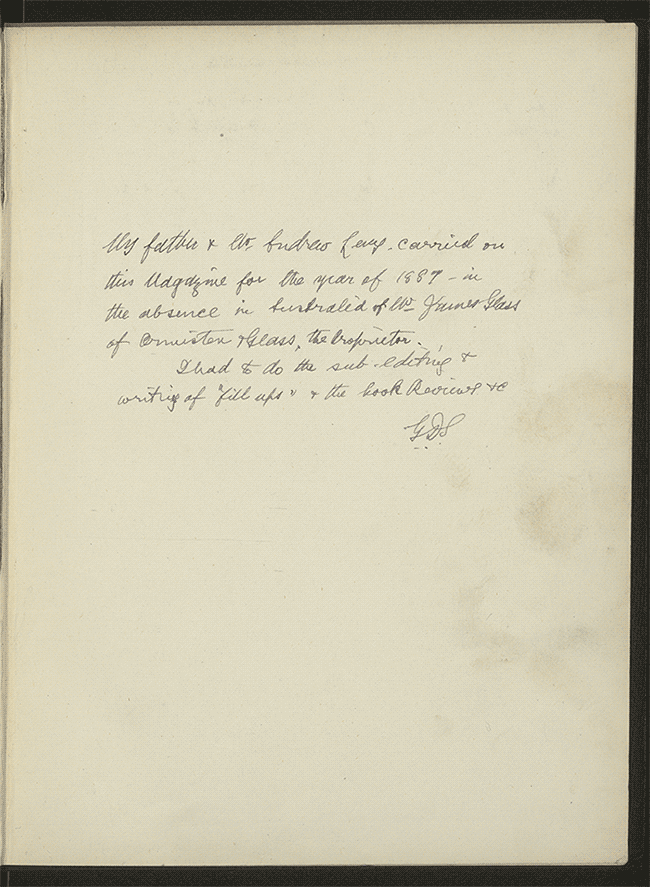 My father & Mr. Andrew Lang - carried on
this Magazine for the year of 1887 - in
the absence in Australia of Mr James Glass
of Ormiston & Glass, the Proprietor.
I had to do the sub-editing &
writing of "fill ups" & the book Reviews &c
GDS